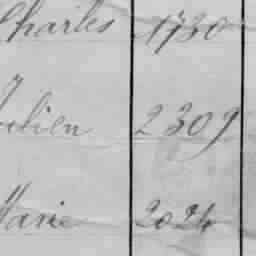 Charles 1730
Julien 2309
Marie 2024